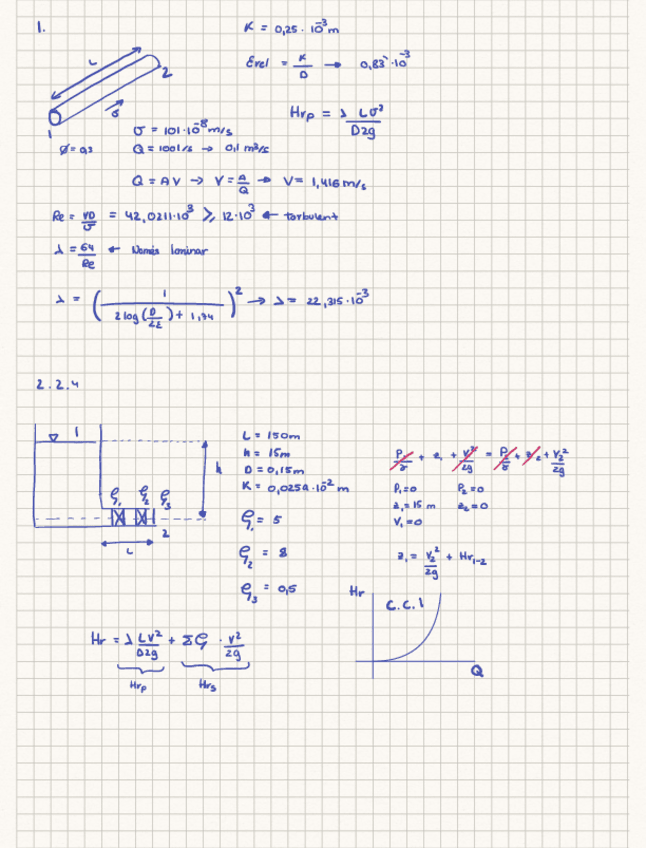 1.
K = 0,25 · 10^-3 m
Erel = K/D → 0,83 · 10^-3
L
2
1
Hrp = λ Lv²/D2g
ʋ = 101·10^-8 m/s
Ø = 0,3
Q = 100 l/s → 0,1 m³/s
Q = A V → V = A/Q → V = 1,416 m/s
Re = VD/ʋ = 42,0211·10^3 ⩾ 12·10^3 ← turbulent
λ = 64/Re ← Només laminar
λ = (1/(2 log(D/2E) + 1,74))² → λ = 22,315·10^-3
2.2.4
1
h
L = 150m
h = 15m
D = 0,15m
K = 0,0254·10^-2 m
P1/γ + z1 + V1²/2g = P2/γ + z2 + V2²/2g
P1=0 P2=0
z1=15 m z2=0
V1=0
ξ1 ξ2 ξ3
2
L
ξ1 = 5
ξ2 = 8
ξ3 = 0,5
z1 = V2²/2g + Hr1-2
Hr
C.C.I
Q
Hr = λ LV²/D2g + Σξ · V²/2g
Hrp Hrs